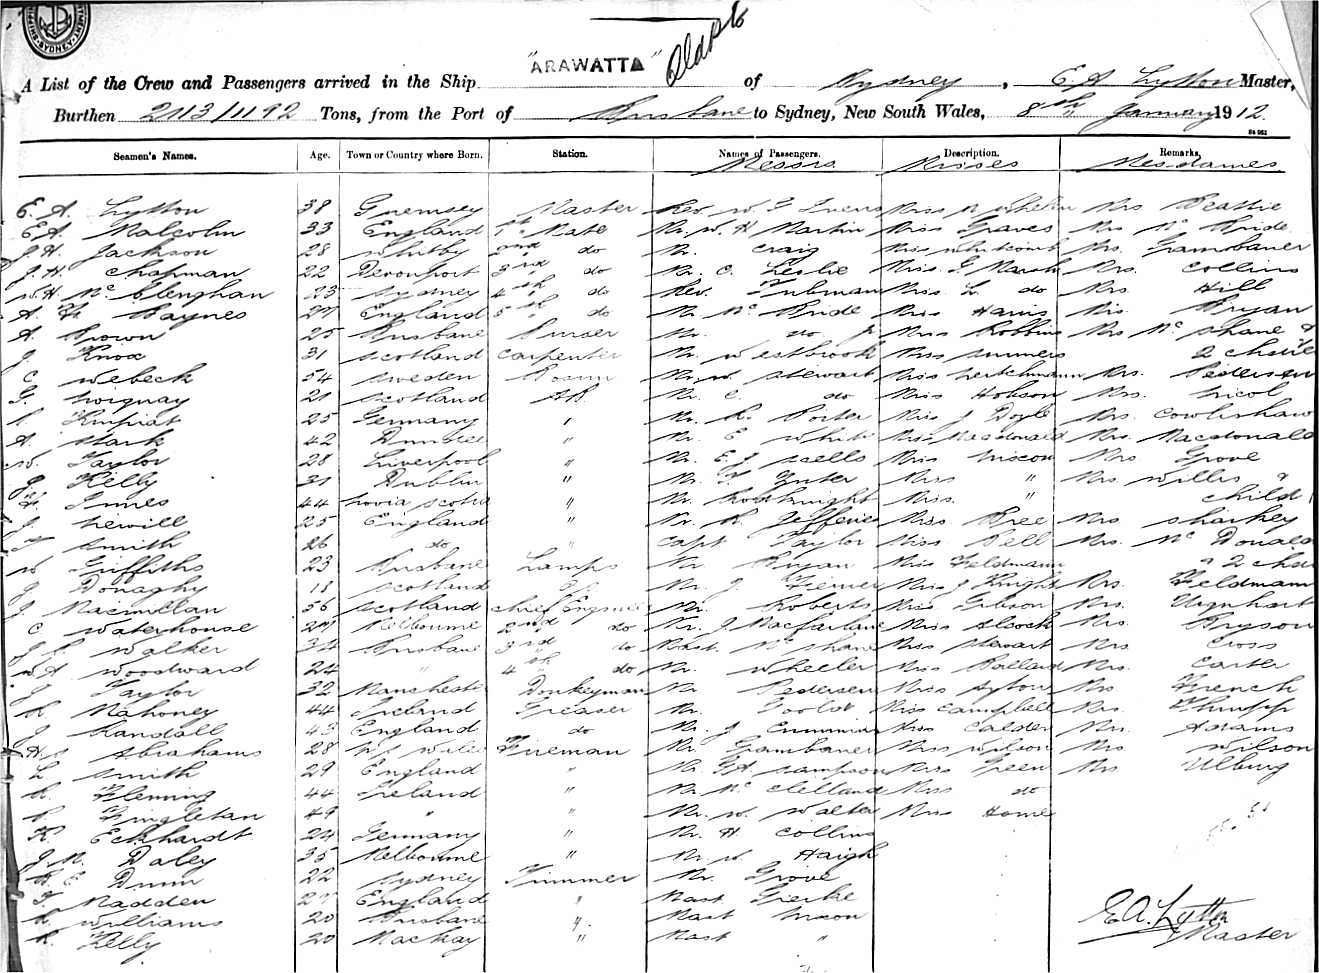 SYDNEY
"ARAWATTA"
A List of the Crew and Passengers arrived in the Ship of Sydney, E. A. Lytton Master,
Burthen 2113/1192 Tons, from the Port of Brisbane to Sydney, New South Wales, 8th January 1912.
Seamen's Names. Age. Town or Country where Born. Station. Names of Passengers. Description. Remarks.
Messrs Misses Mesdames
E. A. Lytton 38 Guernsey Master Rev. W. Miss Mrs Beattie
E. A. Malcolm 33 England 1st Mate Mr. W. H. Martin Miss Graves Mrs Mc Bride
J. H. Jackson 28 Whitby 2nd do Mr. Craig Miss Whitcomb Mrs. Gambaner
J. H. Chapman 22 Devonport 3rd do Mr. C. Leslie Miss J Marsh Mrs. Collins
W. H. Mc Clenghan 23 Sydney 4th do Rev. Tubman Miss L. do Mrs Hill
A. Baynes 27 England 5th do Mr. Mc Bride Miss Harris Mrs Bryan
A. Brown 25 Brisbane Purser Mr. do Jr Miss Robbins Mrs Mc Shane &
J. Knox 31 Scotland Carpenter Mr. Westbrook Miss Summers 2 child
C Webeck 54 Sweden Bosun Mr. W. Stewart Miss Mrs. Pedersen
21 Scotland AB Mr. C. do Miss Hobson Mrs. Nicol
25 Germany " Mr. Porter Miss J Doyle Mrs. Cowlishaw
A Stark 42 Dundee " Mr. E White Miss Macdonald Mrs. Macdonald
W. Taylor 28 Liverpool " Mr. E. J. Scells Miss Nixon Mrs Grove
J. Kelly 31 Dublin " Mr. Miss " Mrs Willis &
Innes 44 Novia Scotia " Mr. Miss. " child
J. Newill 25 England " Mr. R. Jefferies Miss Bree Mrs Sharkey
Smith 26 do " Capt. Taylor Miss Pell Mrs. Mc Donald
W Griffiths 23 Brisbane Lamps Mr Bryan Miss Feldmann & 2 chd
J Donaghy 18 Scotland Mr. J. Miss J Knight Mrs. Feldmann
J. Macmillan 56 Scotland Chief Engineer Mr. Roberts Miss Gibson Mrs. Urquhart
C Waterhouse 27 Melbourne 2nd do Mr. J. Macfarlane Miss Alcock Mrs. Bryson
Walker 34 Brisbane 3rd do Mast. Mc Shane Miss Stewart Mrs Cross
W. A. Woodward 24 " 4th do Mr. Wheeler Miss Mrs. Carter
J Taylor 32 Manchester Donkeyman Mr Pedersen Miss Mrs French
Mahoney 44 Ireland Greaser Mr. Miss Campbell Mrs.
J Randall 43 England do Mr. J. Cummins Miss Calder Mrs. Adams
Abrahams 28 N S Wales Fireman Mr. Gambaner Miss Wilson Mrs Wilson
L. Smith 29 England " Mr. G. A. Sampson Miss Green Mrs Ulburg
Fleming 44 Ireland " Mr. Mc Clelland Miss do
49 " " Mr. W. Walter Miss Home
K. Eckhardt 24 Germany " Mr. H Collins
J. M. Daley 35 Melbourne " Mr. W. Haigh
Dunn 22 Sydney Trimmer Mr. Grove
Madden 27 England " Mast. Gerke
Williams 20 Brisbane " Mast Nixon
Kelly 20 Mackay " Mast "
E. A. Lytton
Master